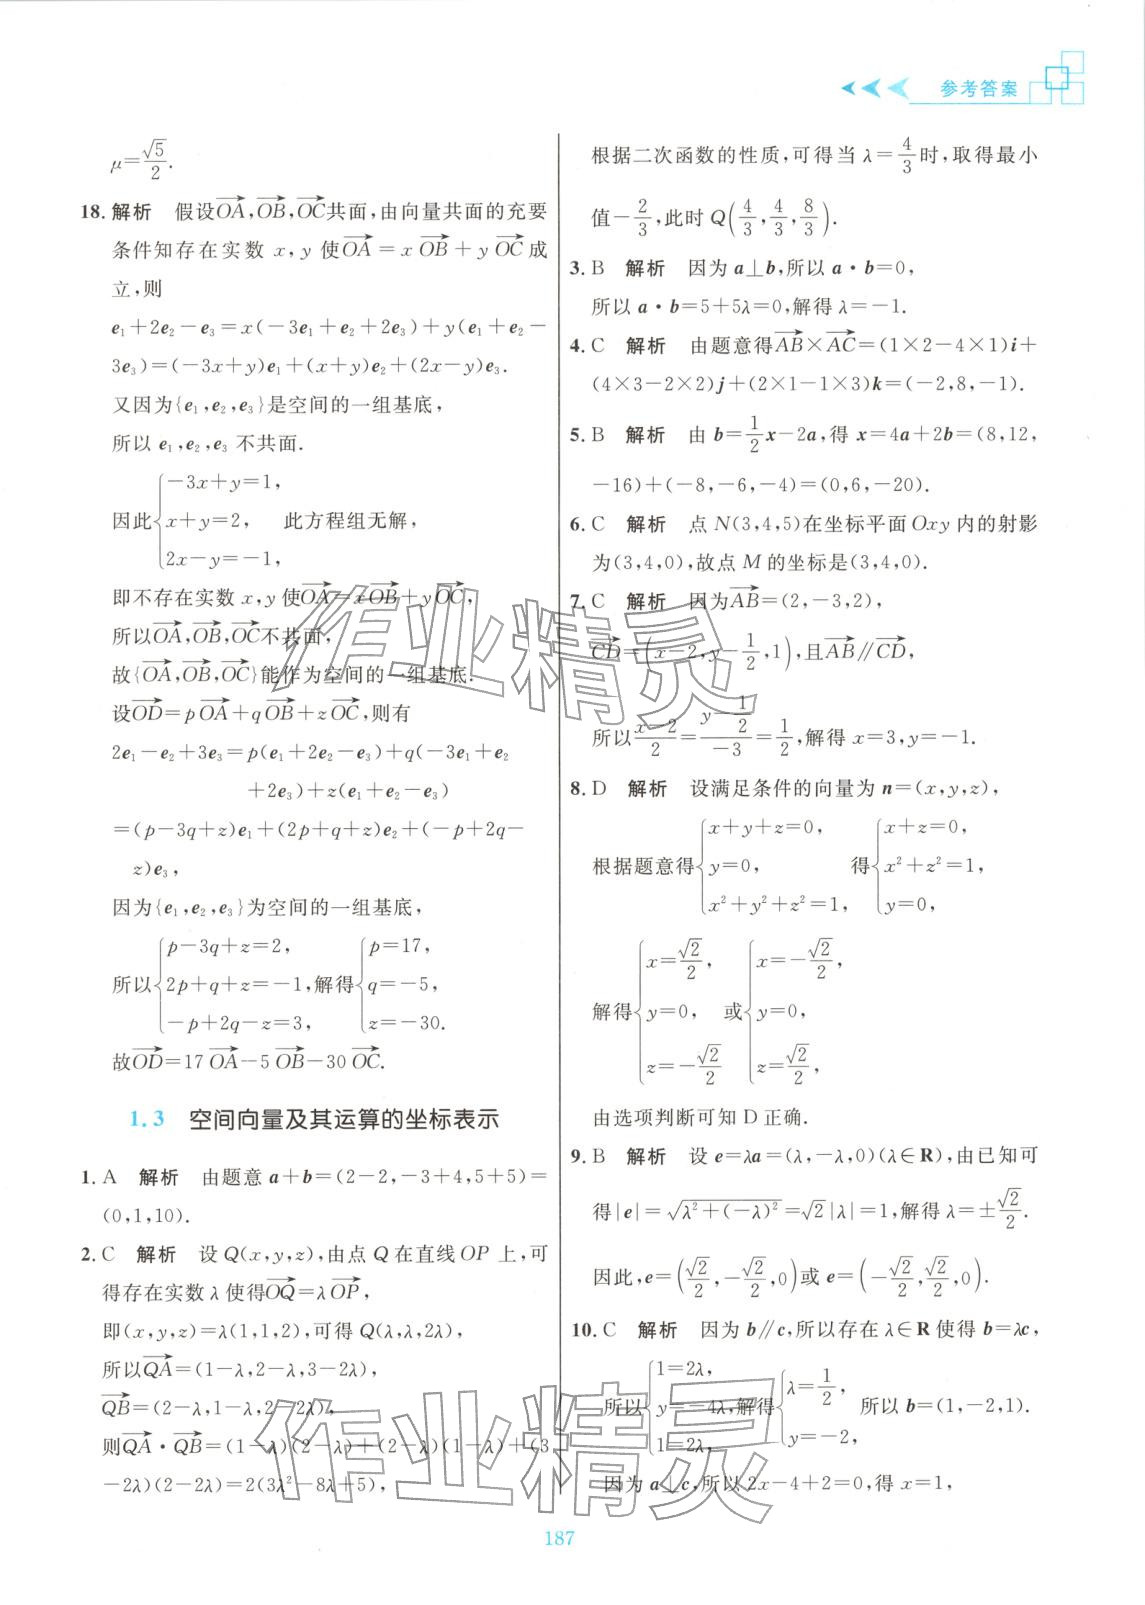 参考答案
μ=√5/2.
18. 解析 假设OA→,OB→,OC→共面,由向量共面的充要
条件知存在实数 x,y 使OA→=x OB→+y OC→成
立,则
e₁+2e₂-e₃=x(-3e₁+e₂+2e₃)+y(e₁+e₂-
3e₃)=(-3x+y)e₁+(x+y)e₂+(2x-y)e₃.
又因为{e₁,e₂,e₃}是空间的一组基底,
所以 e₁,e₂,e₃ 不共面.
因此{-3x+y=1,
x+y=2, 此方程组无解,
2x-y=-1,
即不存在实数 x,y 使OA→=xOB→+yOC→,
所以OA→,OB→,OC→不共面,
故{OA→,OB→,OC→}能作为空间的一组基底.
设OD→=pOA→+qOB→+zOC→,则有
2e₁-e₂+3e₃=p(e₁+2e₂-e₃)+q(-3e₁+e₂
+2e₃)+z(e₁+e₂-e₃)
=(p-3q+z)e₁+(2p+q+z)e₂+(-p+2q-
z)e₃,
因为{e₁,e₂,e₃}为空间的一组基底,
所以{p-3q+z=2, 2p+q+z=-1, -p+2q-z=3, 解得{p=17, q=-5, z=-30.
故OD→=17 OA→-5 OB→-30 OC→.
1.3 空间向量及其运算的坐标表示
1. A 解析 由题意 a+b=(2-2,-3+4,5+5)=
(0,1,10).
2. C 解析 设 Q(x,y,z),由点 Q 在直线 OP 上,可
得存在实数 λ 使得OQ→=λOP→,
即(x,y,z)=λ(1,1,2),可得 Q(λ,λ,2λ),
所以QA→=(1-λ,2-λ,3-2λ),
QB→=(2-λ,1-λ,2-2λ),
则QA→·QB→=(1-λ)(2-λ)+(2-λ)(1-λ)+(3
-2λ)(2-2λ)=2(3λ²-8λ+5),
根据二次函数的性质,可得当 λ=4/3时,取得最小
值-2/3,此时 Q(4/3,4/3,8/3).
3. B 解析 因为 a⊥b,所以 a·b=0,
所以 a·b=5+5λ=0,解得 λ=-1.
4. C 解析 由题意得AB→×AC→=(1×2-4×1)i+
(4×3-2×2)j+(2×1-1×3)k=(-2,8,-1).
5. B 解析 由 b=1/2x-2a,得 x=4a+2b=(8,12,
-16)+(-8,-6,-4)=(0,6,-20).
6. C 解析 点 N(3,4,5)在坐标平面 Oxy 内的射影
为(3,4,0),故点 M 的坐标是(3,4,0).
7. C 解析 因为AB→=(2,-3,2),
CD→=(x-2,y-1/2,1),且AB→∥CD→,
所以(x-2)/2=(y-1/2)/(-3)=1/2,解得 x=3,y=-1.
8. D 解析 设满足条件的向量为 n=(x,y,z),
根据题意得{x+y+z=0, y=0, x²+y²+z²=1, 得{x+z=0, x²+z²=1, y=0,
解得{x=√2/2, y=0, z=-√2/2 或{x=-√2/2, y=0, z=√2/2,
由选项判断可知 D 正确.
9. B 解析 设 e=λa=(λ,-λ,0)(λ∈R),由已知可
得|e|=√(λ²+(-λ)²)=√2|λ|=1,解得 λ=±√2/2.
因此,e=(√2/2,-√2/2,0)或 e=(-√2/2,√2/2,0).
10. C 解析 因为 b∥c,所以存在 λ∈R 使得 b=λc,
所以{1=2λ, y=-4λ, 1=2λ, 解得{λ=1/2, y=-2, 所以 b=(1,-2,1).
因为 a⊥c,所以 2x-4+2=0,得 x=1,
187
作业精灵
作业精灵